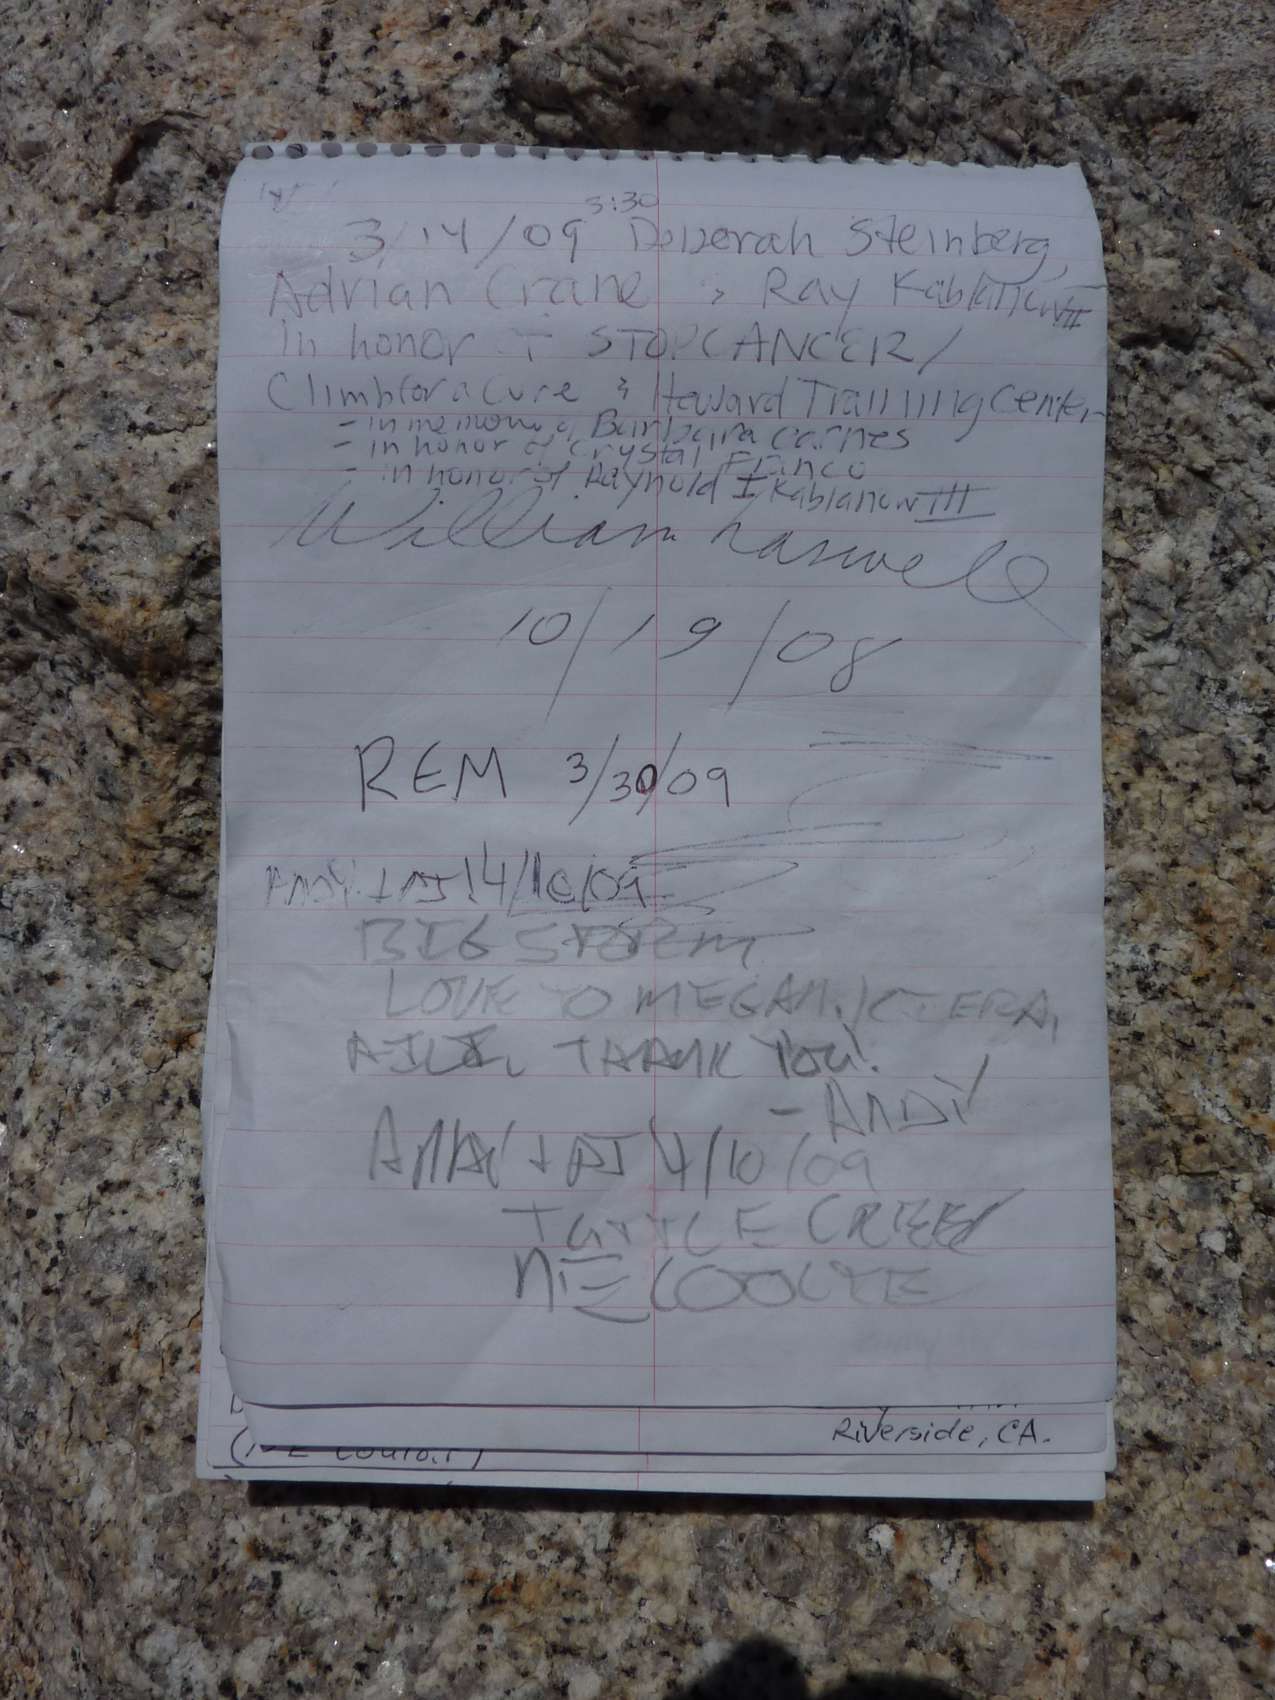 3:30
3/14/09 Deborah Steinberg,
Adrian Crane & Ray Kablanow II
in honor of STOPCANCER/
Climb for a Cure & Howard Training Center
- in memory of Barbara Carnes
- in honor of Crystal Franco
- in honor of Raynold I Kablanow III
William
10/19/08
REM 3/30/09
ANDY + AJ! 4/10/09
BIG STORM
LOVE TO MEGAN,
THANK YOU!
- ANDY
ANDY + AJ 4/10/09
TUTTLE CREEK
Riverside, CA.